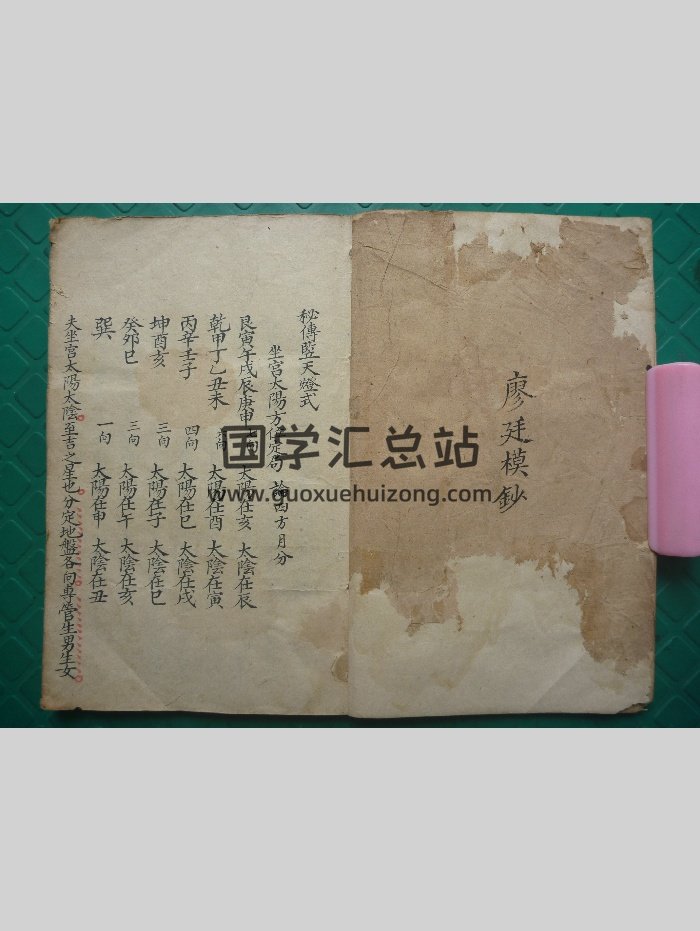 廖廷模鈔
秘傳藍天燈式
坐宮太陽方位定句 論四方月分
艮寅午戌辰庚申 七向 太陽在亥 太陰在辰
乾甲丁乙丑未 向 太陽在酉 太陰在寅
丙辛壬子 四向 太陽在巳 太陰在戌
坤酉亥 三向 太陽在子 太陰在巳
癸卯巳 三向 太陽在午 太陰在亥
巽 一向 太陽在申 太陰在丑
夫坐宮太陽太陰至吉之星也分定地盤各向專管生男生女
国学汇总站
www.guoxuehuizong.com